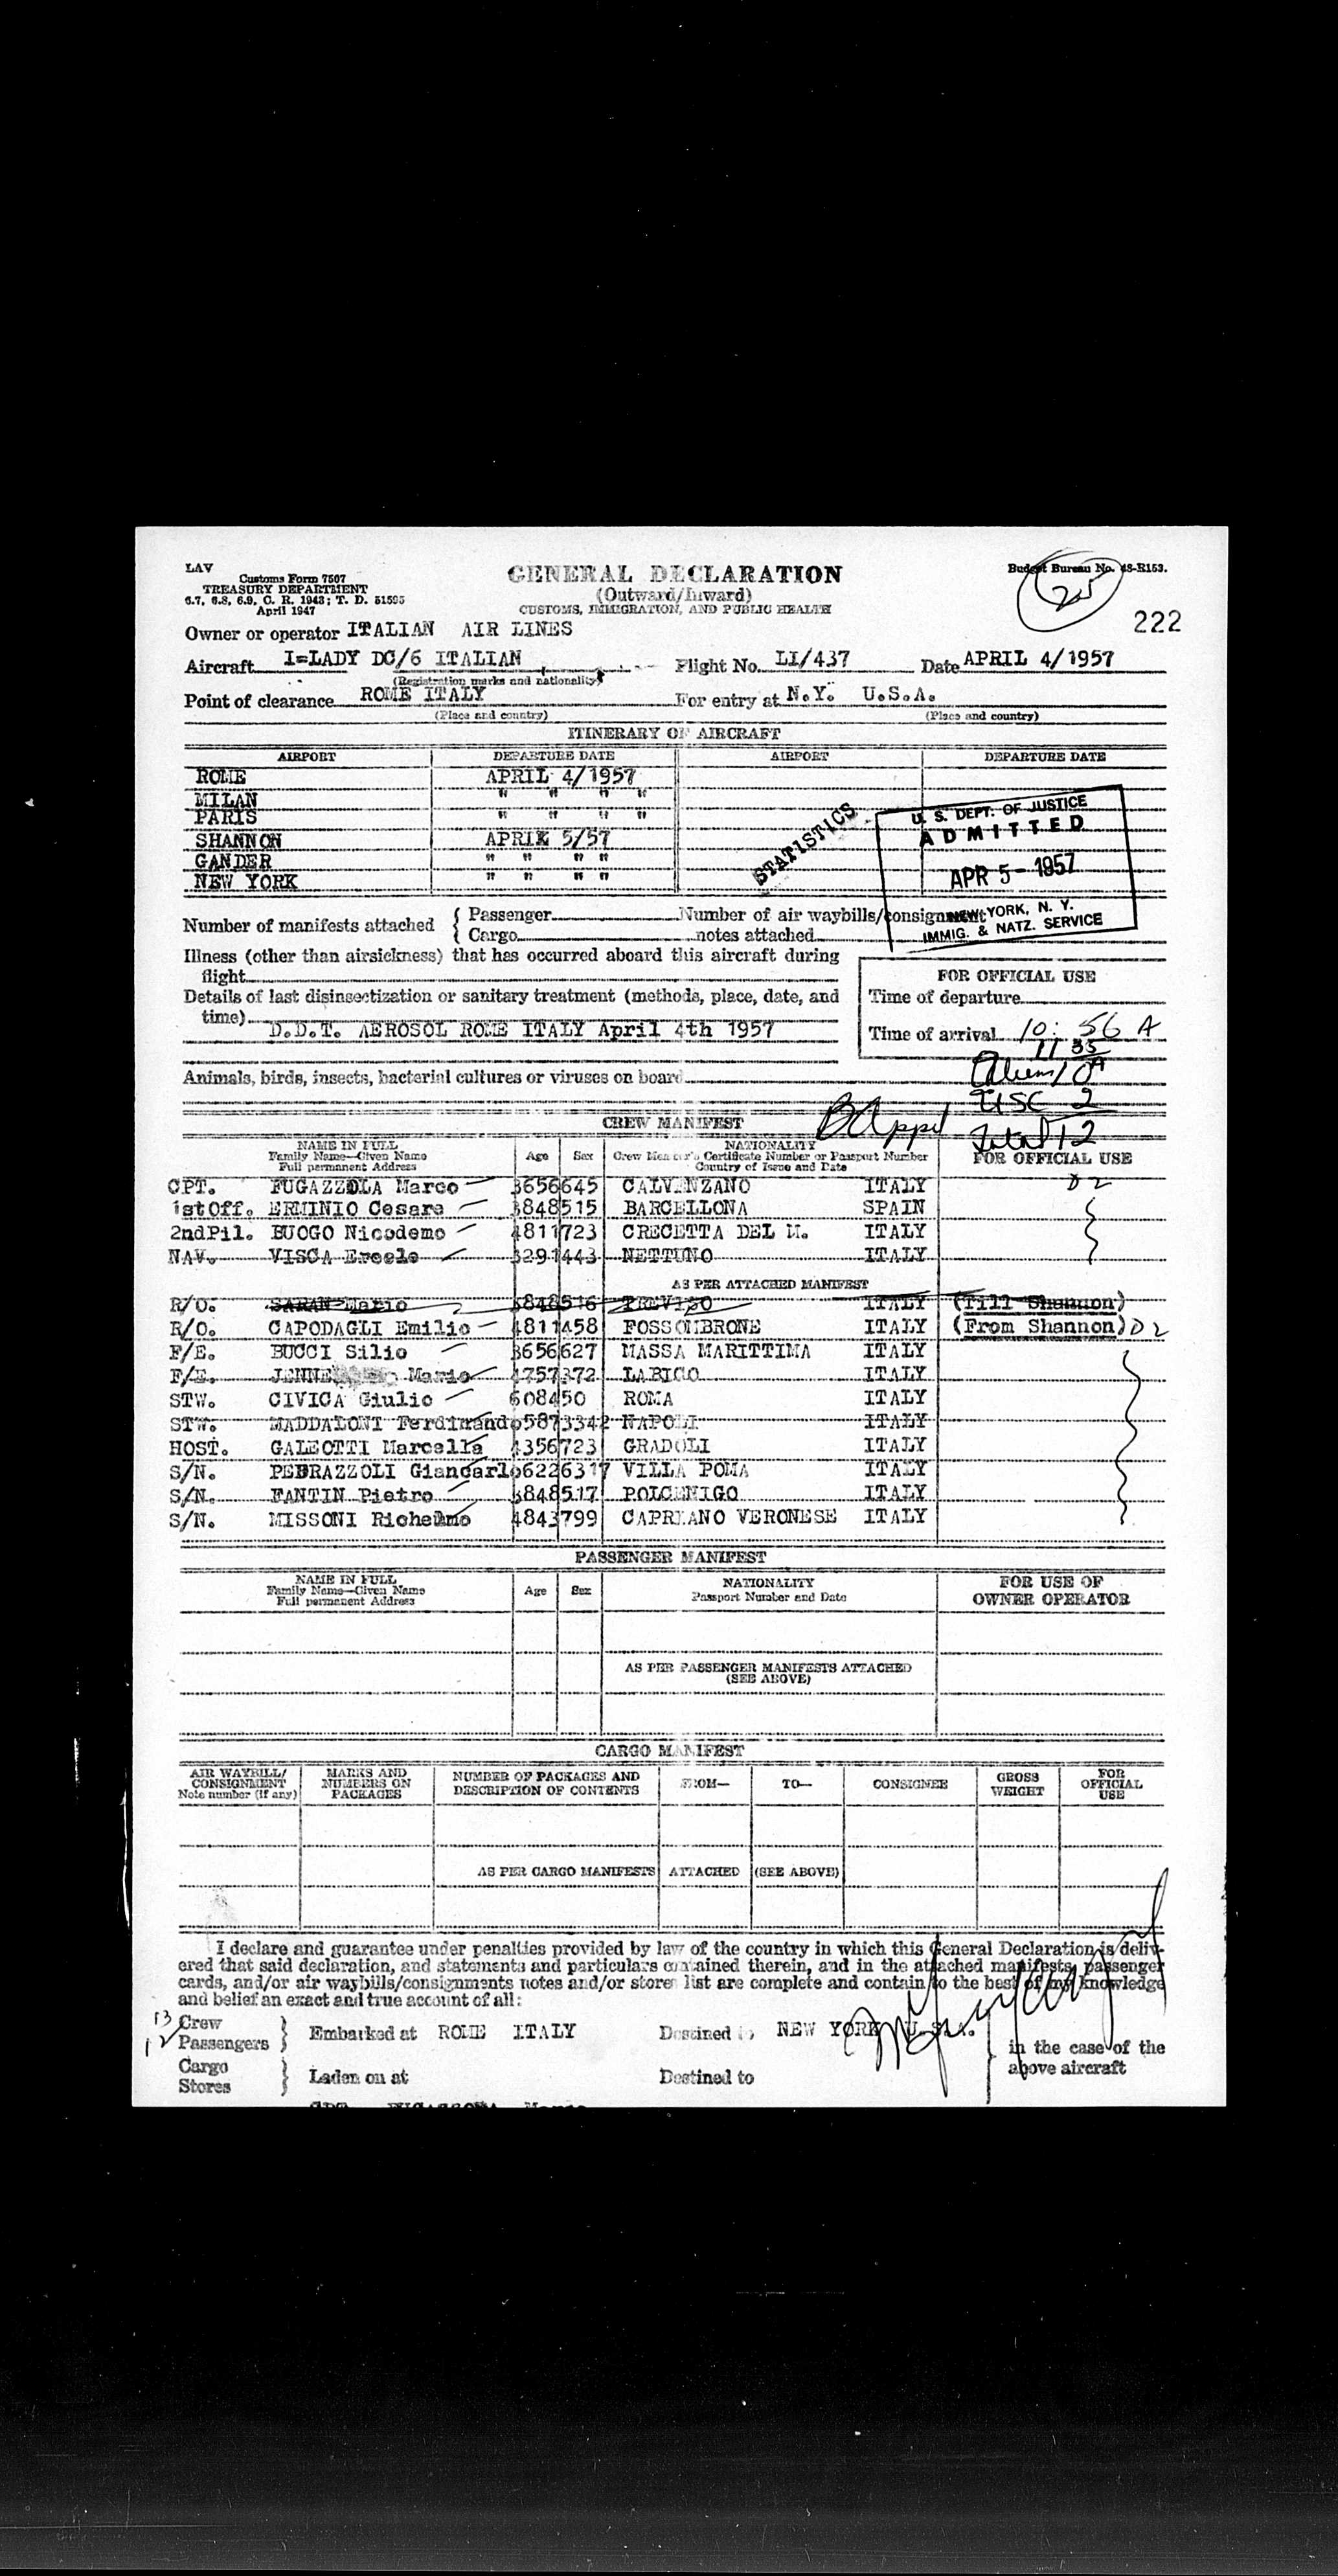 LAV
Customs Form 7507
TREASURY DEPARTMENT
6.7, 6.8, 6.9, C. R. 1943; T. D. 51595
April 1947
GENERAL DECLARATION
(Outward/Inward)
CUSTOMS, IMMIGRATION, AND PUBLIC HEALTH
Budget Bureau No. 48-R153.
222
Owner or operator ITALIAN AIR LINES
Aircraft I=LADY DC/6 ITALIAN Flight No. LI/437 Date APRIL 4/1957
(Registration marks and nationality)
Point of clearance ROME ITALY For entry at N.Y. U.S.A.
(Place and country) (Place and country)
ITINERARY OF AIRCRAFT
AIRPORT DEPARTURE DATE AIRPORT DEPARTURE DATE
ROME APRIL 4/1957
MILAN " " " "
PARIS " " " "
SHANNON APRIL 5/57
GANDER " " " "
NEW YORK " " " "
STATISTICS
U. S. DEPT. OF JUSTICE
ADMITTED
APR 5 - 1957
NEW YORK, N. Y.
IMMIG. & NATZ. SERVICE
Number of manifests attached { Passenger Number of air waybills/consignment
{ Cargo notes attached
Illness (other than airsickness) that has occurred aboard this aircraft during
flight
Details of last disinsectization or sanitary treatment (methods, place, date, and
time) D.D.T. AEROSOL ROME ITALY April 4th 1957
FOR OFFICIAL USE
Time of departure
Time of arrival 10: 56 A
11 35
Animals, birds, insects, bacterial cultures or viruses on board
Aliens 10
USC 2
Total 12
CREW MANIFEST
NAME IN FULL
Family Name—Given Name
Full permanent Address
Age Sex
NATIONALITY
Crew Member's Certificate Number or Passport Number
Country of Issue and Date
FOR OFFICIAL USE
CPT. FUGAZZOLA Marco 3656645 CALVENZANO ITALY D2
1stOff. ERMINIO Cesare 3848515 BARCELLONA SPAIN
2ndPil. BUOGO Nicodemo 4811723 CRECETTA DEL M. ITALY
NAV. VISCA Ercole 3291443 NETTUNO ITALY
AS PER ATTACHED MANIFEST
R/O. SARAN Mario 3848516 TREVISO ITALY (Till Shannon)
R/O. CAPODAGLI Emilio 4811458 FOSSOMBRONE ITALY (From Shannon) D2
F/E. BUCCI Silio 3656627 MASSA MARITTIMA ITALY
F/E. Mario 4757372 LABICO ITALY
STW. CIVICA Giulio 608450 ROMA ITALY
STW. MADDALONI Ferdinando 5873342 NAPOLI ITALY
HOST. GALEOTTI Marcella 4356723 GRADOLI ITALY
S/N. PEDRAZZOLI Giancarlo 6226317 VILLA POMA ITALY
S/N. FANTIN Pietro 3848517 POLCENIGO ITALY
S/N. MISSONI Richelmo 4843799 CAPRIANO VERONESE ITALY
PASSENGER MANIFEST
NAME IN FULL
Family Name—Given Name
Full permanent Address
Age Sex
NATIONALITY
Passport Number and Date
FOR USE OF
OWNER OPERATOR
AS PER PASSENGER MANIFESTS ATTACHED
(SEE ABOVE)
CARGO MANIFEST
AIR WAYBILL/
CONSIGNMENT
Note number (if any)
MARKS AND
NUMBERS ON
PACKAGES
NUMBER OF PACKAGES AND
DESCRIPTION OF CONTENTS
FROM— TO— CONSIGNEE
GROSS
WEIGHT
FOR
OFFICIAL
USE
AS PER CARGO MANIFESTS ATTACHED (SEE ABOVE)
I declare and guarantee under penalties provided by law of the country in which this General Declaration is deliv-
ered that said declaration, and statements and particulars contained therein, and in the attached manifests, passenger
cards, and/or air waybills/consignments notes and/or stores list are complete and contain to the best of my knowledge
and belief an exact and true account of all:
13 Crew
12 Passengers } Embarked at ROME ITALY Destined to NEW YORK U.S.A.
Cargo
Stores } Laden on at Destined to
in the case of the
above aircraft